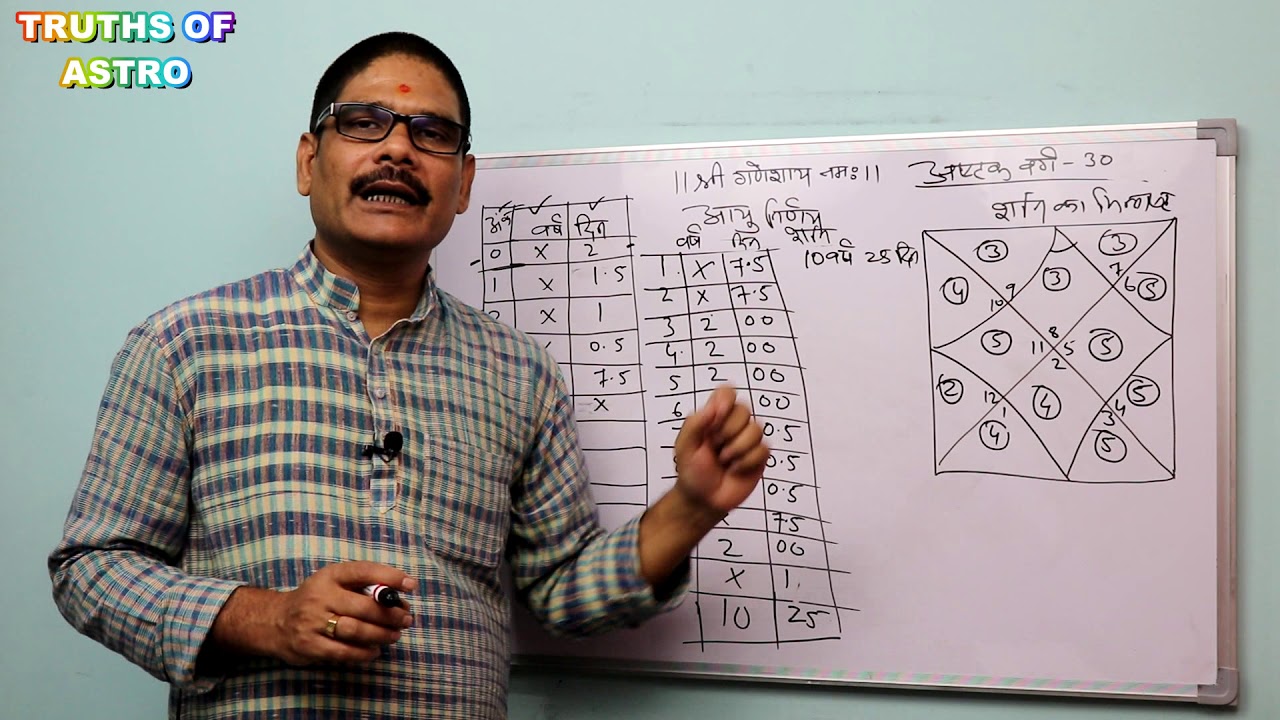 TRUTHS OF
ASTRO
।। श्री गणेशाय नमः ।।
अष्टक वर्ग - 30
आयु निर्णय
शनि
10 वर्ष 25 दिन
अंक वर्ष दिन
0 x 2
1 x 1.5
x 1
0.5
7.5
x
वर्ष दिन
1. x 7.5
2 x 7.5
3 2 00
4. 2 00
5 2 00
6 00
0.5
0.5
0.5
x 7.5
2 00
x 1.
10 25
शनि का
3 3
4 9 3 7 5
10 6
5 8 5
11 5
2
2 12 4 4 5
1 3
4 5